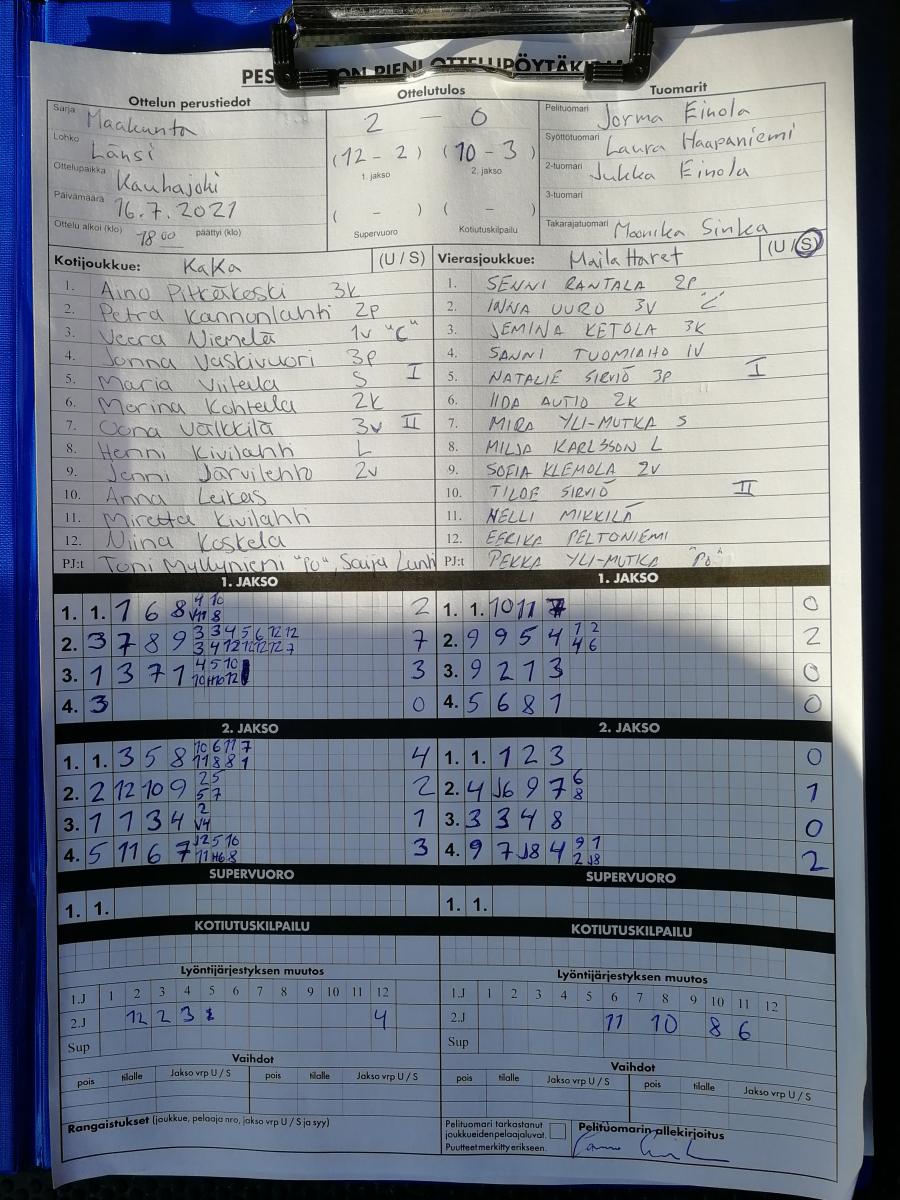 PIENI OTTELUPÖYTÄKIRJA
Ottelun perustiedot
Ottelutulos
Tuomarit
Sarja Maakunta
Lohko Länsi
Ottelupaikka Kauhajoki
Päivämäärä 16.7.2021
Ottelu alkoi (klo) 18 00 päättyi (klo)
2 - 0
(12 - 2) (10 - 3)
1. jakso 2. jakso
( - ) ( - )
Supervuoro Kotiutuskilpailu
Pelituomari Jorma Einola
Syöttötuomari Laura Haapaniemi
2-tuomari Jukka Einola
3-tuomari
Takarajatuomari Moonika Sinka
Kotijoukkue: KaKa (U / S)
1. Aino Pitkäkoski 3k
2. Petra Kannonlahti 2p
3. Veera Niemelä 1v "C"
4. Jonna Vaskivuori 3p
5. Maria Viitala S I
6. Marina Kohtala 2k
7. Oona Välkkilä 3v II
8. Henni Kivilahti L
9. Jenni Järvilehto 2v
10. Anna Leikas
11. Miretta Kivilahti
12. Niina Koskela
PJ:t Toni Myllyniemi "Po", Saija Lunti
Vierasjoukkue: Maila Haret (U / S)
1. SENNI RANTALA 2P
2. INNA UURO 3V "C"
3. JEMINA KETOLA 3K
4. SANNI TUOMIAHO 1V
5. NATALIE SIRVIÖ 3P I
6. IIDA AUTIO 2K
7. MIRA YLI-MUTKA S
8. MILJA KARLSSON L
9. SOFIA KLEMOLA 2V
10. TILDE SIRVIÖ II
11. NELLI MIKKILÄ
12. EERIKA PELTONIEMI
PJ:t PEKKA YLI-MUTKA "Po"
1. JAKSO
1. 1. 1 6 8 4 10 V11 8 2
2. 3 7 8 9 3 3 4 5 6 12 12 3 4 12 12 12 12 7 7
3. 1 3 7 1 4 5 10 3
4. 3 0
1. JAKSO
1. 1. 10 11 7 0
2. 9 9 5 4 1 2 4 6 2
3. 9 2 1 3 0
4. 5 6 8 1 0
2. JAKSO
1. 1. 3 5 8 10 6 11 7 11 8 8 1 4
2. 2 12 10 9 2 5 5 7 2
3. 1 1 3 4 2 V4 1
4. 5 11 6 7 J2 5 10 11 H6 8 3
2. JAKSO
1. 1. 1 2 3 0
2. 4 J6 9 7 6 8 1
3. 3 3 4 8 0
4. 9 7 J8 4 9 1 2 J8 2
SUPERVUORO
1. 1.
SUPERVUORO
1. 1.
KOTIUTUSKILPAILU
KOTIUTUSKILPAILU
Lyöntijärjestyksen muutos
1.J 1 2 3 4 5 6 7 8 9 10 11 12
2.J 12 2 3 4
Sup
Lyöntijärjestyksen muutos
1.J 1 2 3 4 5 6 7 8 9 10 11 12
2.J 11 10 8 6
Sup
Vaihdot
pois tilalle Jakso vrp U / S pois tilalle Jakso vrp U / S
Vaihdot
pois tilalle Jakso vrp U / S pois tilalle Jakso vrp U / S
Rangaistukset (joukkue, pelaaja nro, jakso vrp U / S ja syy)
Pelituomari tarkastanut
joukkueiden pelaajaluvat.
Puutteet merkitty erikseen.
Pelituomarin allekirjoitus